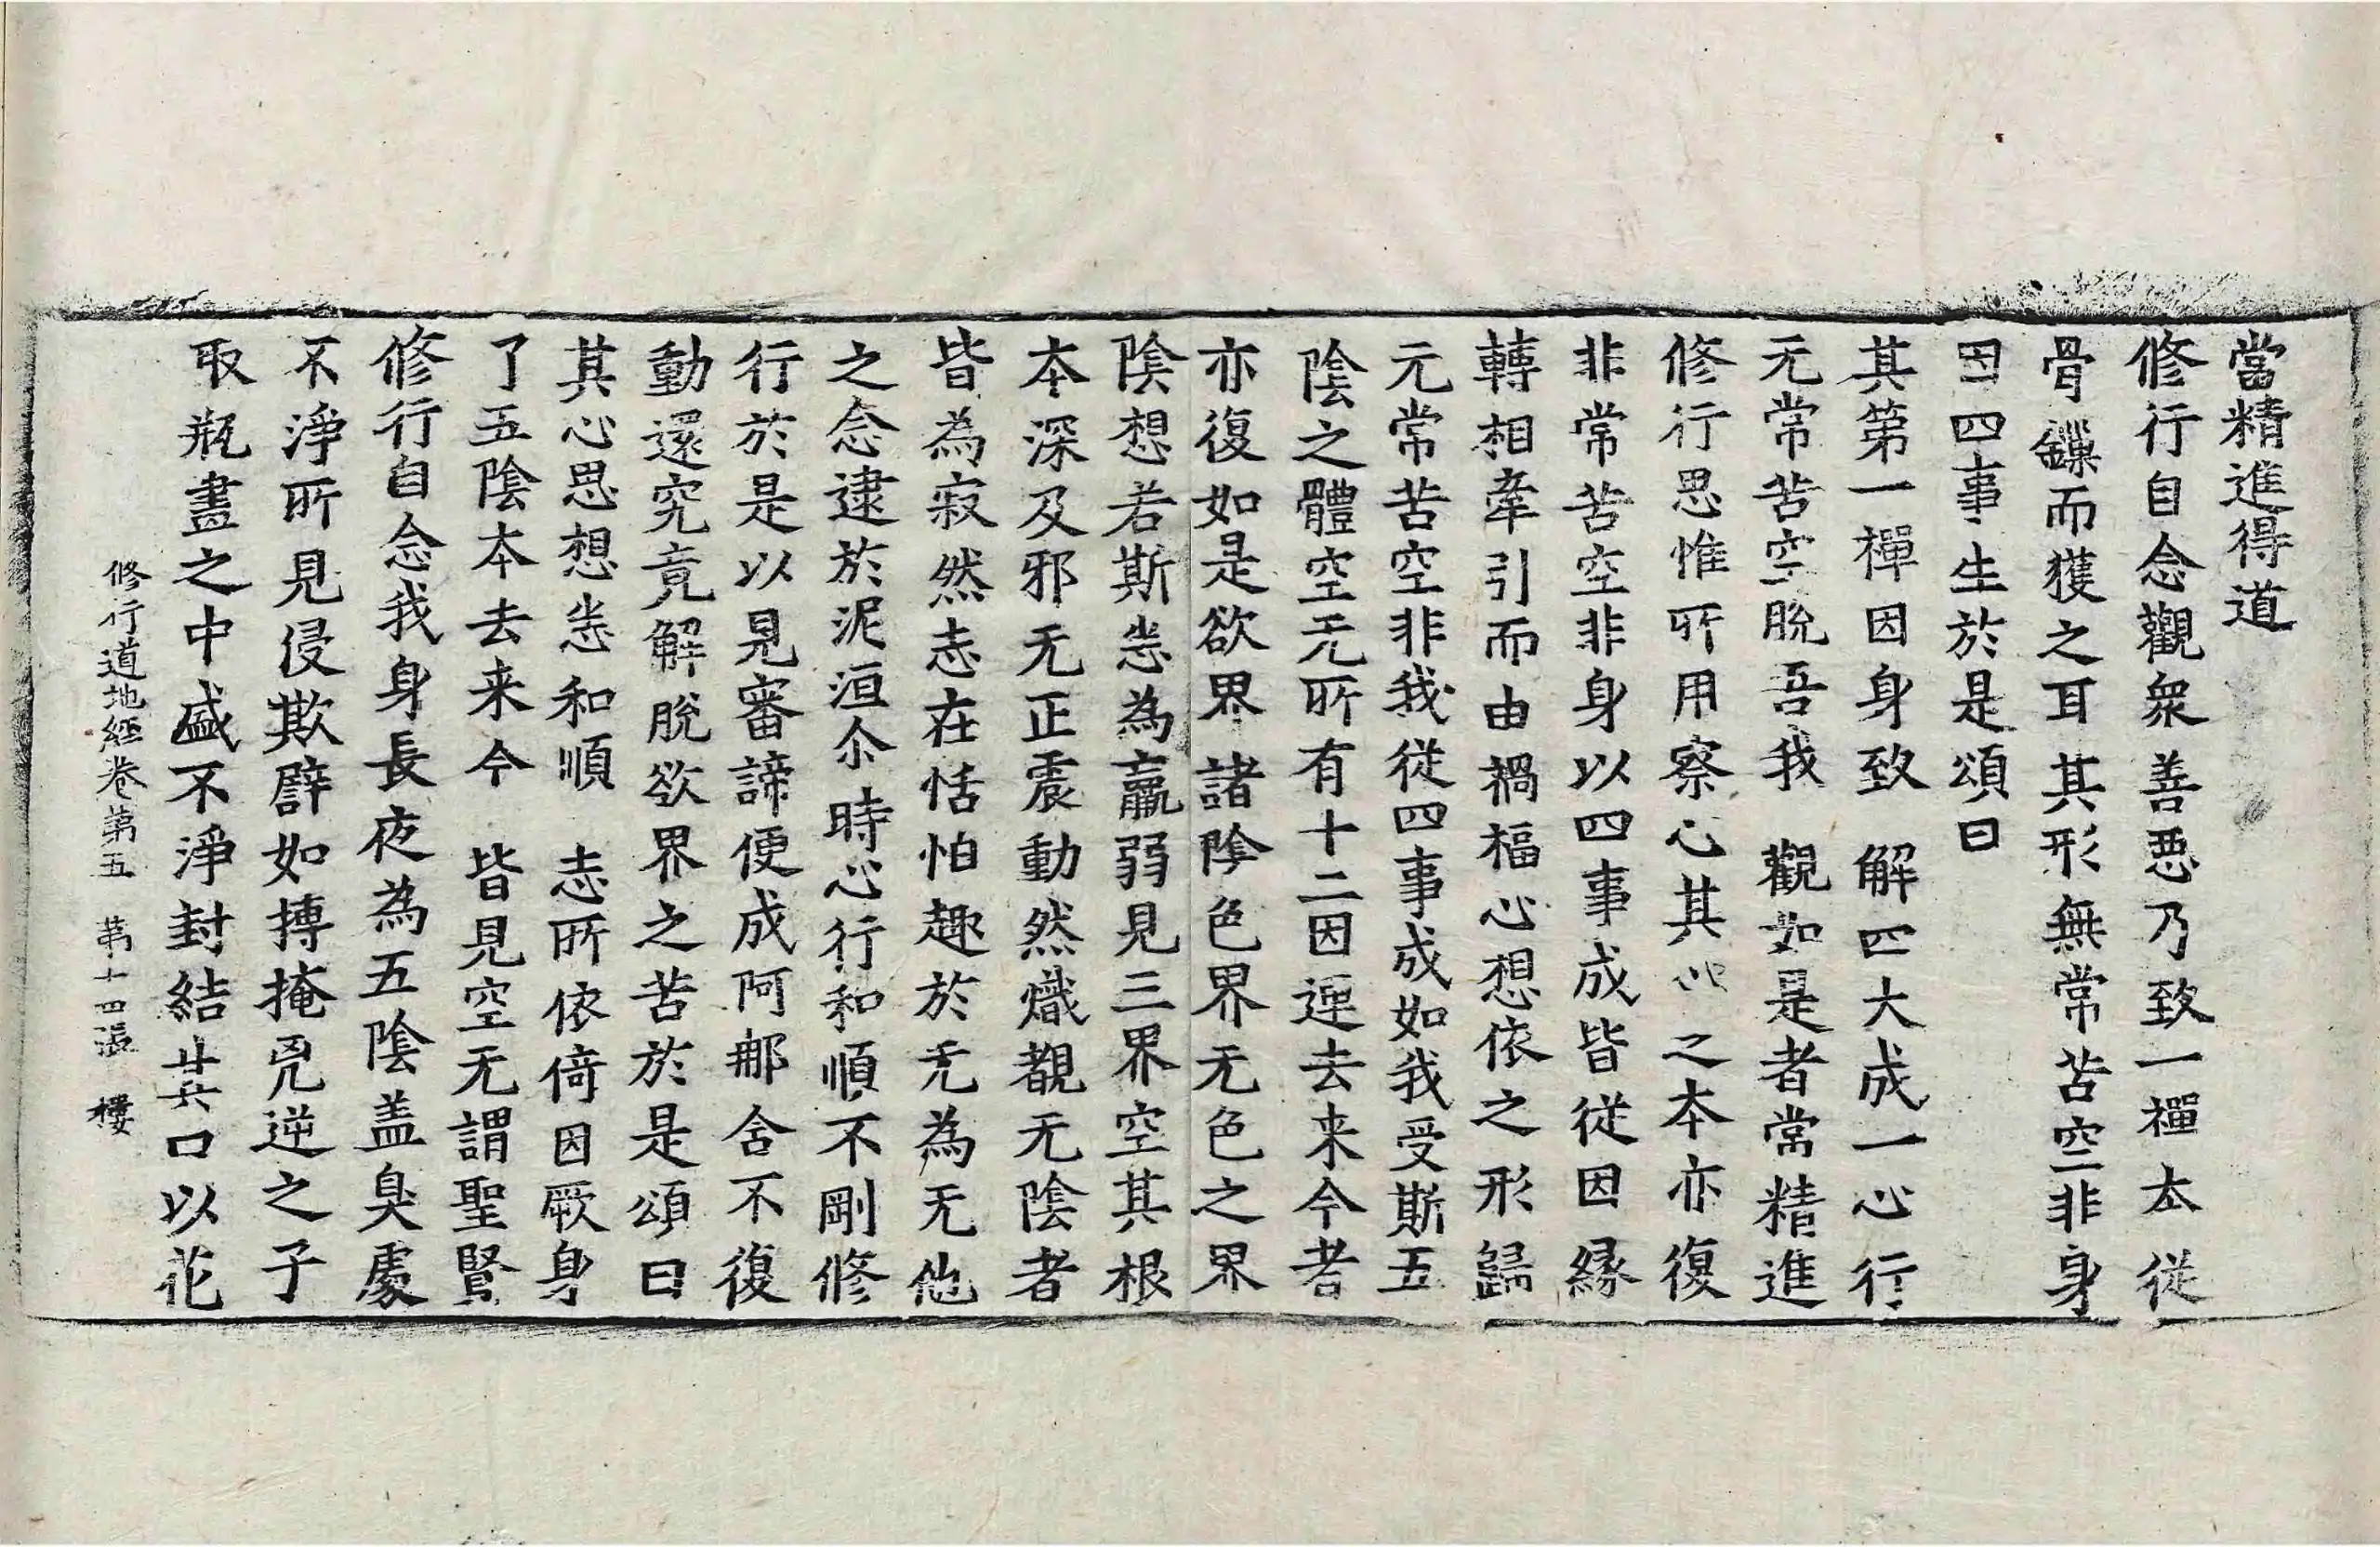 當精進得道
修行自念觀衆善惡乃致一禪夲從
骨鏁而獲之耳其形無常苦空非身
因四事生於是頌曰
其第一禪因身致　解四大成一心行
无常苦空脫吾我　觀如是者常精進
修行思惟所用察心其心之本亦復
非常苦空非身以四事成皆從因緣
轉相牽引而由禍福心想依之形歸
无常苦空非我從四事成如我受斯五
陰之體空无所有十二因連去来今者
亦復如是欲界諸陰色界无色之界
陰想若斯悉為羸弱見三界空其根
本深及邪无正震動然熾覩无陰者
皆為寂然志在恬怕趣於无為无他
之念逮於泥洹尒時心行和順不剛修
行於是以見審諦便成阿那含不復
動還究竟解脫欲界之苦於是頌曰
其心思想悉和順　志所依倚因厥身
了五陰本去来今　皆見空无謂聖賢
修行自念我身長夜為五陰盖臭處
不淨所見侵欺譬如搏掩兇逆之子
取瓶畫之中盛不淨封結其口以花
修行道地經卷第五　第十四張　樓